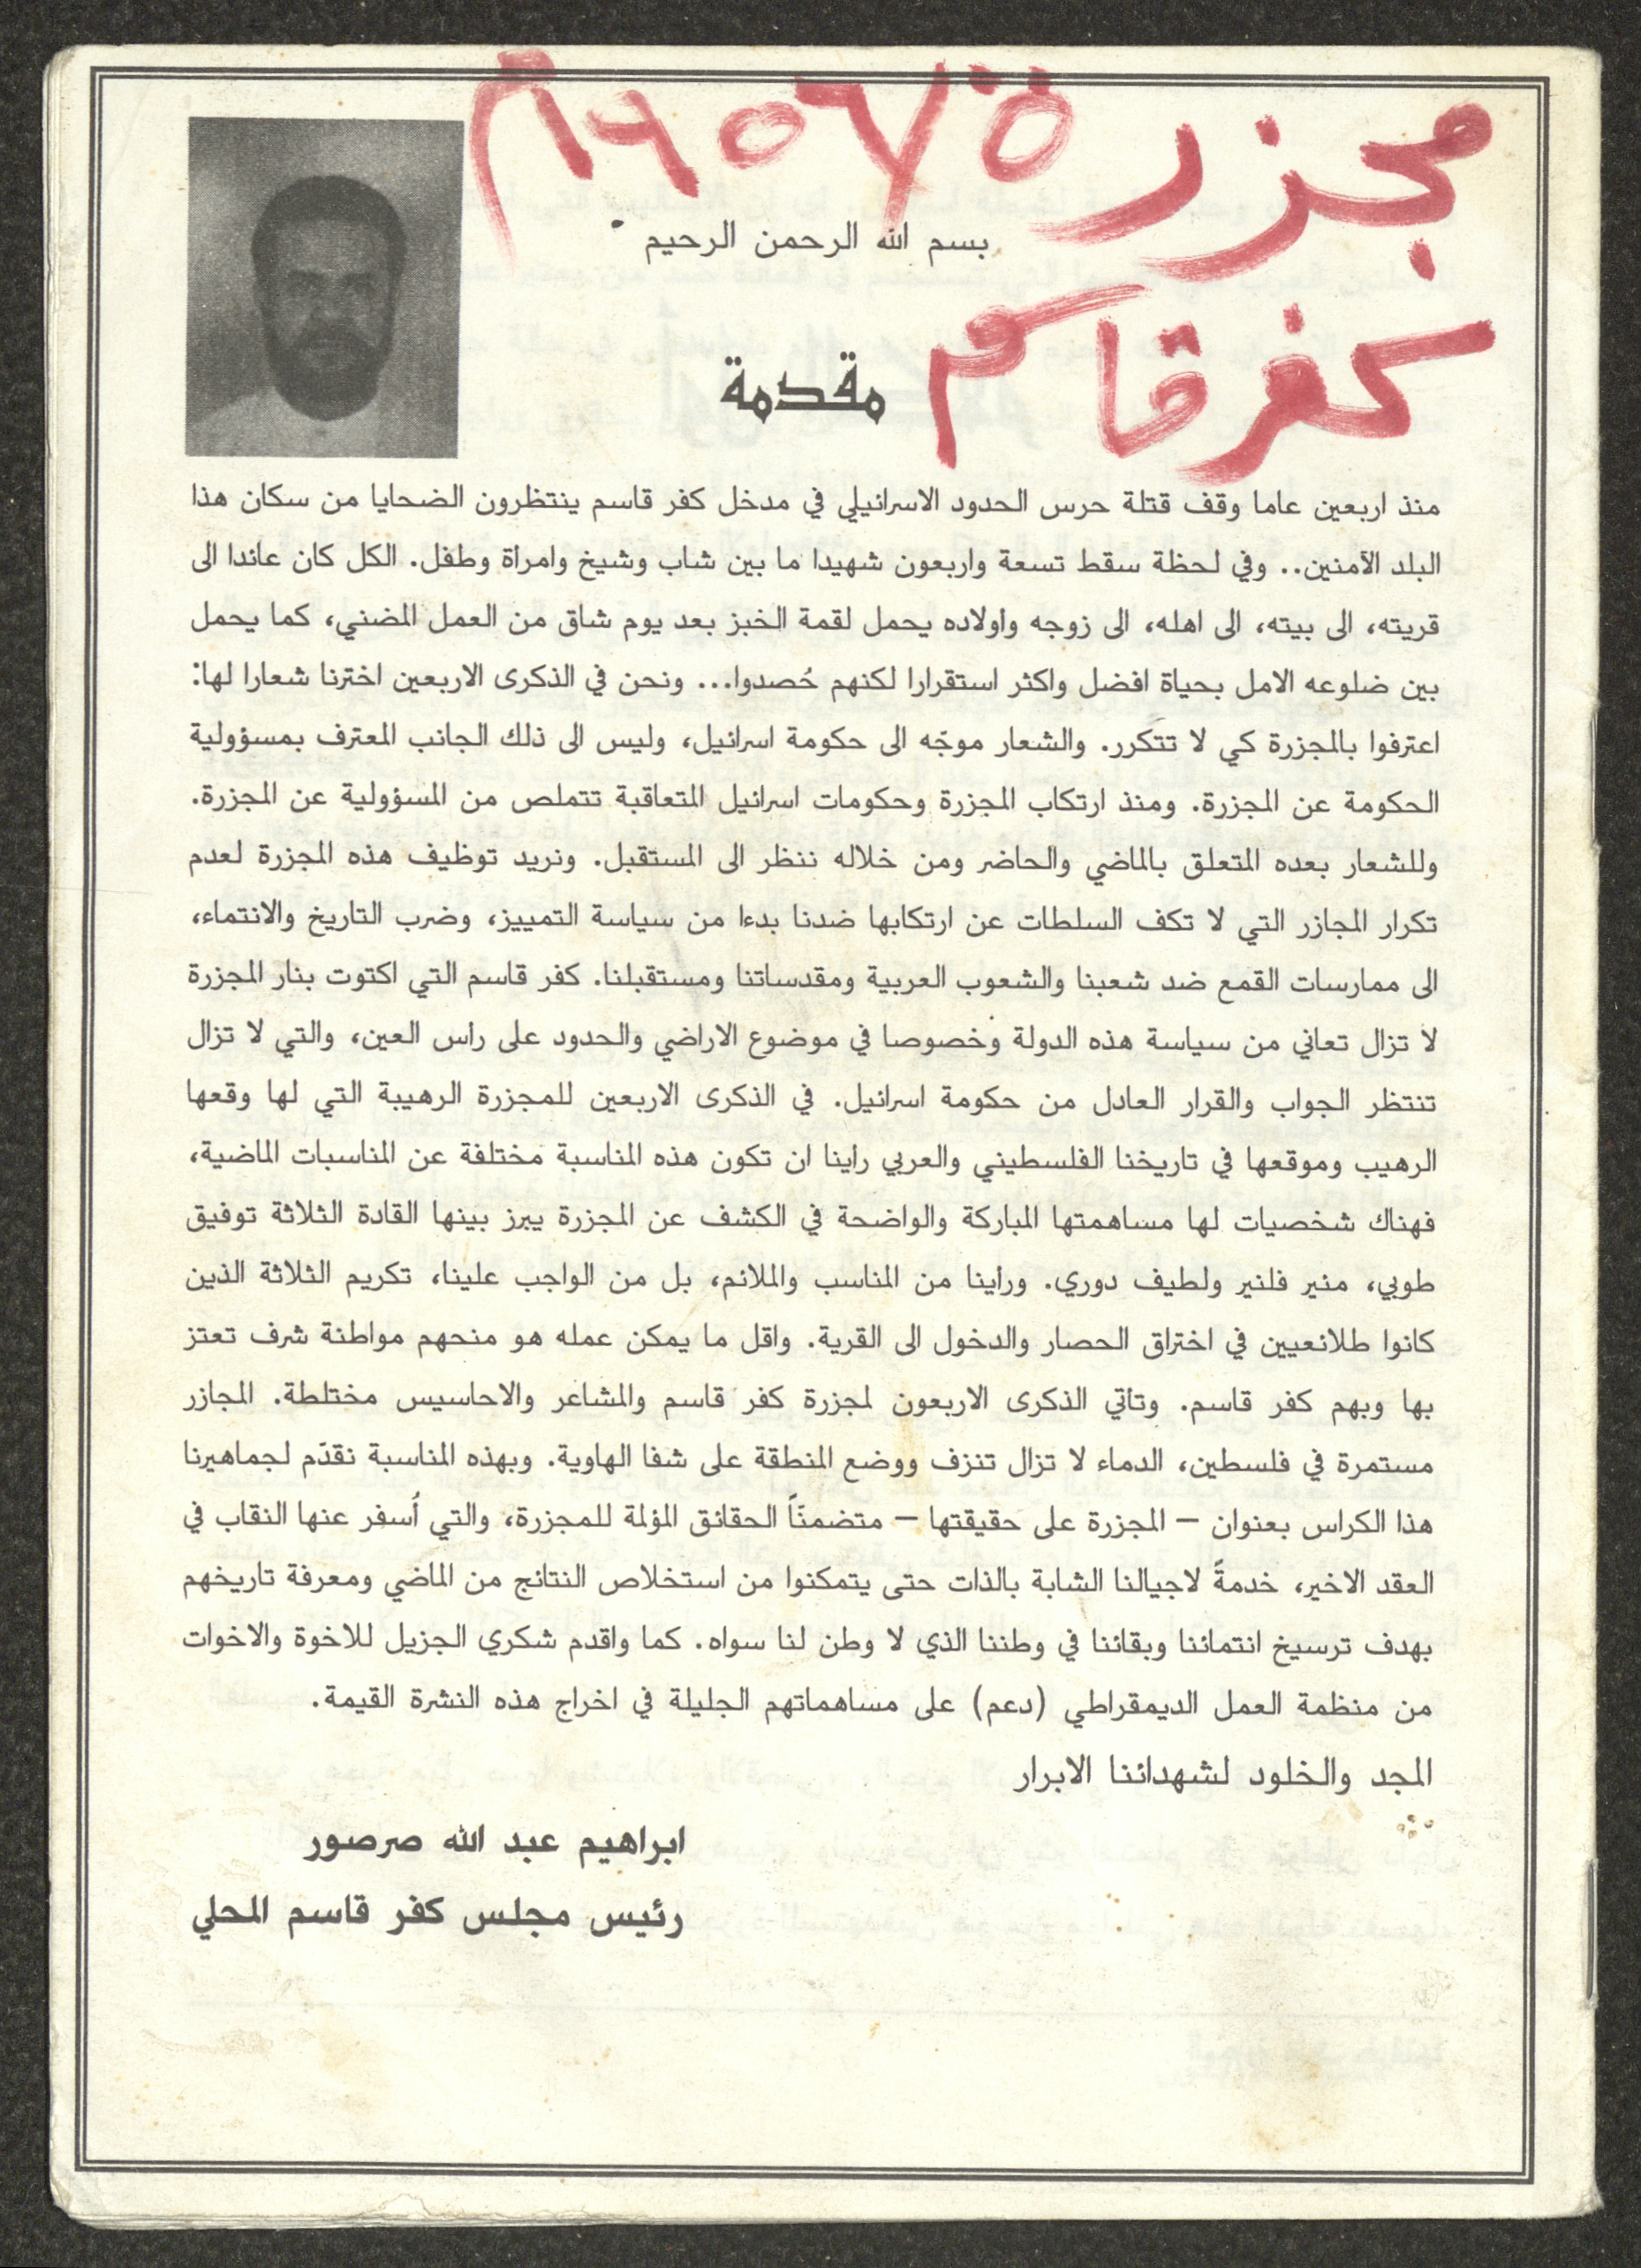 مجزرة ١٩٥٦م
كفر قاسم
بسم الله الرحمن الرحيم
مقدمة
منذ اربعين عاما وقف قتلة حرس الحدود الاسرائيلي في مدخل كفر قاسم ينتظرون الضحايا من سكان هذا
البلد الآمنين.. وفي لحظة سقط تسعة واربعون شهيدا ما بين شاب وشيخ وامراة وطفل. الكل كان عائدا الى
قريته، الى بيته، الى اهله، الى زوجه واولاده يحمل لقمة الخبز بعد يوم شاق من العمل المضني، كما يحمل
بين ضلوعه الامل بحياة افضل واكثر استقرارا لكنهم حُصدوا... ونحن في الذكرى الاربعين اخترنا شعارا لها:
اعترفوا بالمجزرة كي لا تتكرر. والشعار موجّه الى حكومة اسرائيل، وليس الى ذلك الجانب المعترف بمسؤولية
الحكومة عن المجزرة. ومنذ ارتكاب المجزرة وحكومات اسرائيل المتعاقبة تتملص من المسؤولية عن المجزرة.
وللشعار بعده المتعلق بالماضي والحاضر ومن خلاله ننظر الى المستقبل. ونريد توظيف هذه المجزرة لعدم
تكرار المجازر التي لا تكف السلطات عن ارتكابها ضدنا بدءا من سياسة التمييز، وضرب التاريخ والانتماء،
الى ممارسات القمع ضد شعبنا والشعوب العربية ومقدساتنا ومستقبلنا. كفر قاسم التي اكتوت بنار المجزرة
لا تزال تعاني من سياسة هذه الدولة وخصوصا في موضوع الاراضي والحدود على راس العين، والتي لا تزال
تنتظر الجواب والقرار العادل من حكومة اسرائيل. في الذكرى الاربعين للمجزرة الرهيبة التي لها وقعها
الرهيب وموقعها في تاريخنا الفلسطيني والعربي راينا ان تكون هذه المناسبة مختلفة عن المناسبات الماضية،
فهناك شخصيات لها مساهمتها المباركة والواضحة في الكشف عن المجزرة يبرز بينها القادة الثلاثة توفيق
طوبي، منير فلنير ولطيف دوري. وراينا من المناسب والملائم، بل من الواجب علينا، تكريم الثلاثة الذين
كانوا طلائعيين في اختراق الحصار والدخول الى القرية. واقل ما يمكن عمله هو منحهم مواطنة شرف تعتز
بها وبهم كفر قاسم. وتأتي الذكرى الاربعون لمجزرة كفر قاسم والمشاعر والاحاسيس مختلطة. المجازر
مستمرة في فلسطين، الدماء لا تزال تنزف ووضع المنطقة على شفا الهاوية. وبهذه المناسبة نقدّم لجماهيرنا
هذا الكراس بعنوان – المجزرة على حقيقتها – متضمنّاً الحقائق المؤلمة للمجزرة، والتي أسفر عنها النقاب في
العقد الاخير، خدمةً لاجيالنا الشابة بالذات حتى يتمكنوا من استخلاص النتائج من الماضي ومعرفة تاريخهم
بهدف ترسيخ انتمائنا وبقائنا في وطننا الذي لا وطن لنا سواه. كما واقدم شكري الجزيل للاخوة والاخوات
من منظمة العمل الديمقراطي (دعم) على مساهماتهم الجليلة في اخراج هذه النشرة القيمة.
المجد والخلود لشهدائنا الابرار
ابراهيم عبد الله صرصور
رئيس مجلس كفر قاسم المحلي